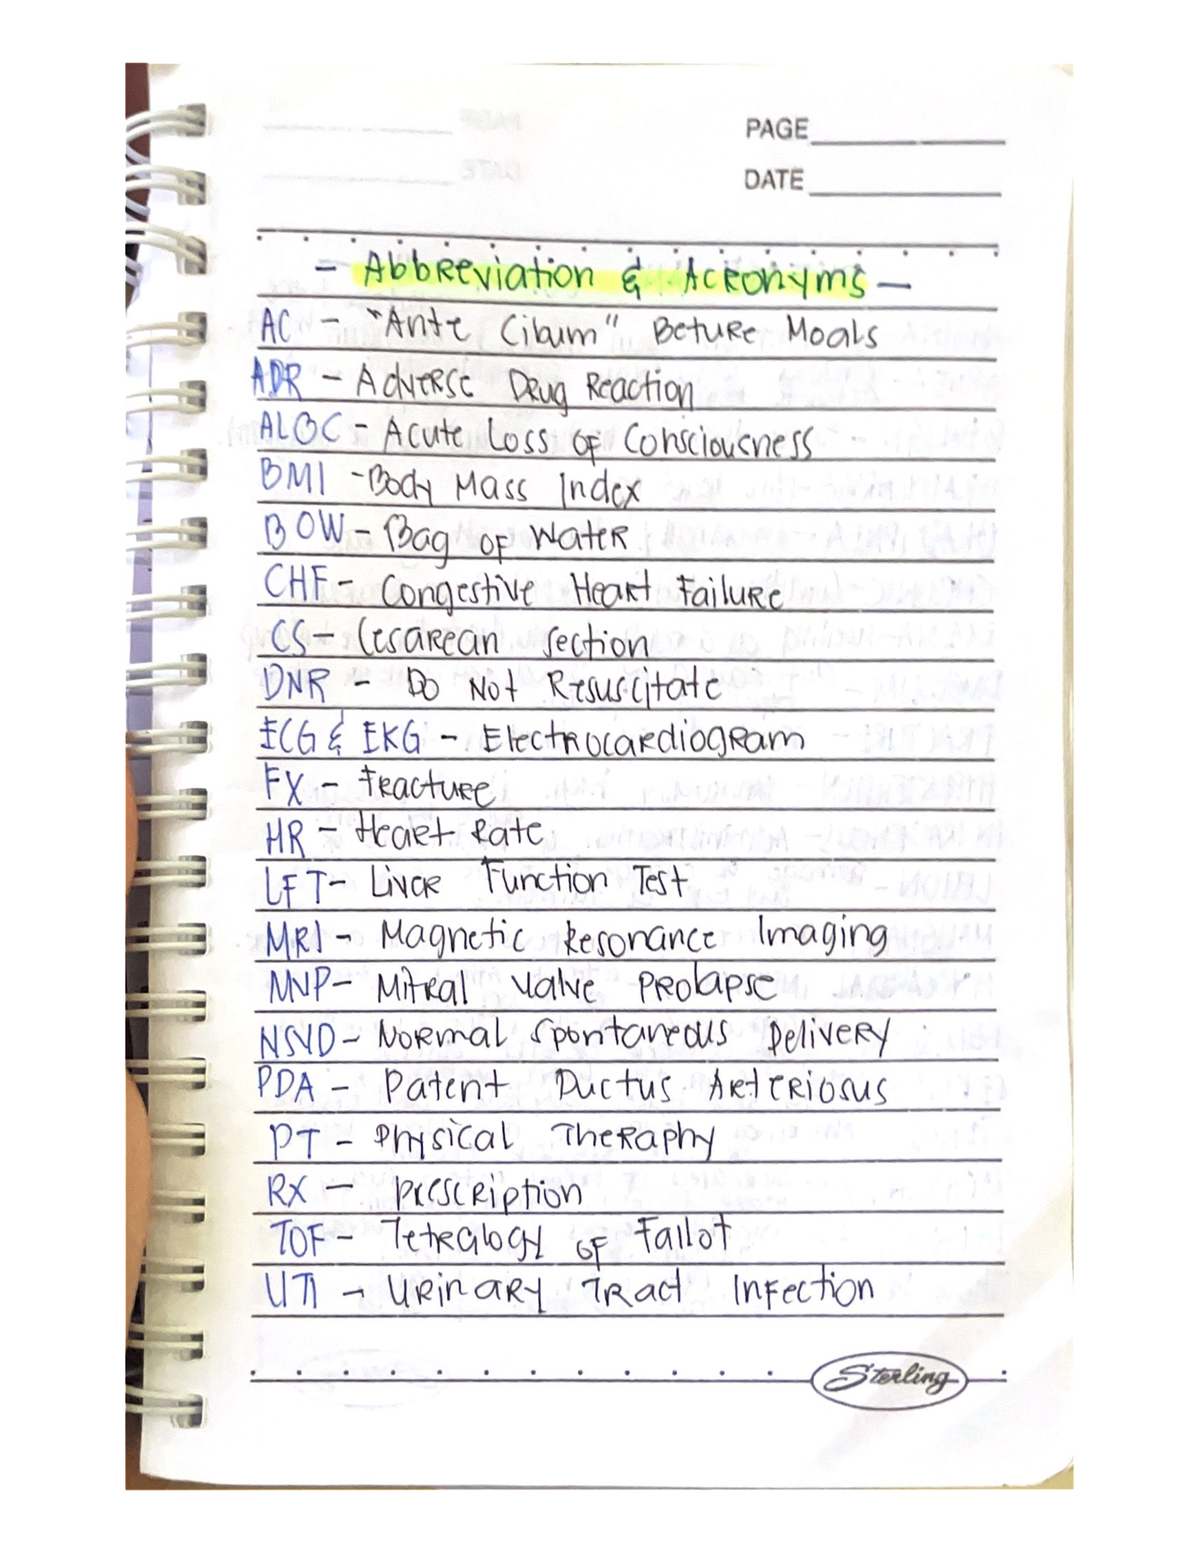 PAGE
DATE
- Abbreviation & Acronyms -
AC - "Ante Cibum" Beture Moals
ADR - Adverse Drug Reaction
ALOC - Acute Loss of Consciousness
BMI - Body Mass Index
BOW - Bag of Water
CHF - Congestive Heart Failure
CS - Cesarean Section
DNR - Do Not Resuscitate
ECG & EKG - Electrocardiogram
FX - Fracture
HR - Heart Rate
LFT - Liver Function Test
MRI - Magnetic Resonance Imaging
MVP - Mitral Valve Prolapse
NSVD - Normal Spontaneous Delivery
PDA - Patent Ductus Arteriosus
PT - Physical Theraphy
RX - Prescription
TOF - Tetralogy of Failot
UTI - Urinary Tract Infection
Sterling